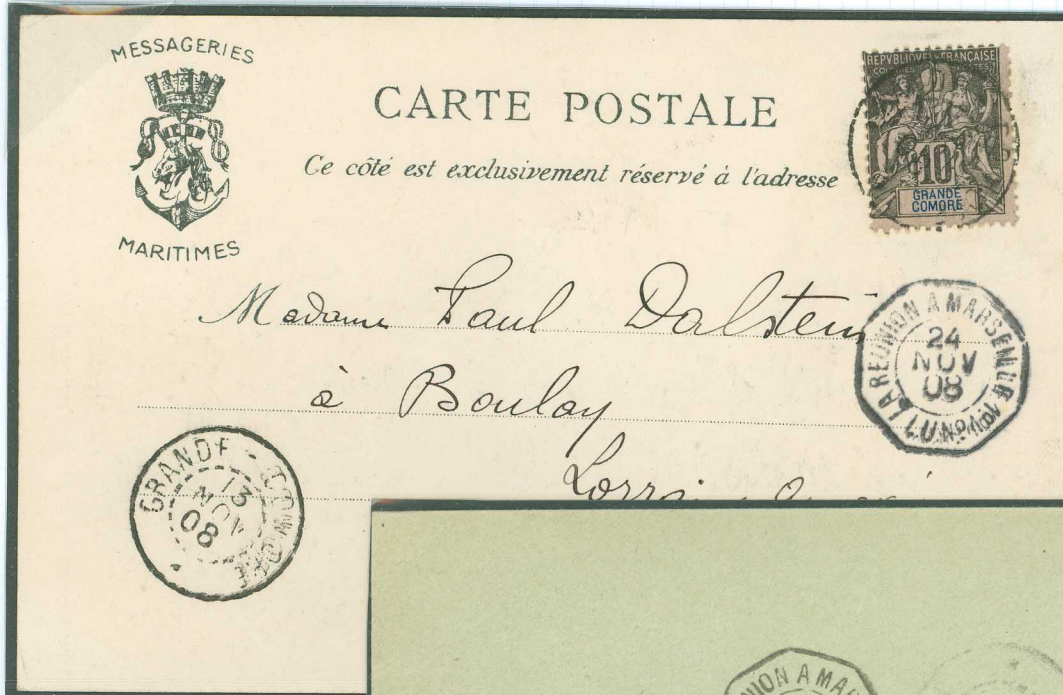 MESSAGERIES
MARITIMES
CARTE POSTALE
Ce côté est exclusivement réservé à l'adresse
REPVBLIQVE FRANÇAISE
10
GRANDE
COMORE
Madame Paul Dalstein
à Boulay
Lorraine
LA REUNION A MARSEILLE
L U N° 1
24
NOV
08
GRANDE - COMORE
13
NOV
08
UNION A MA